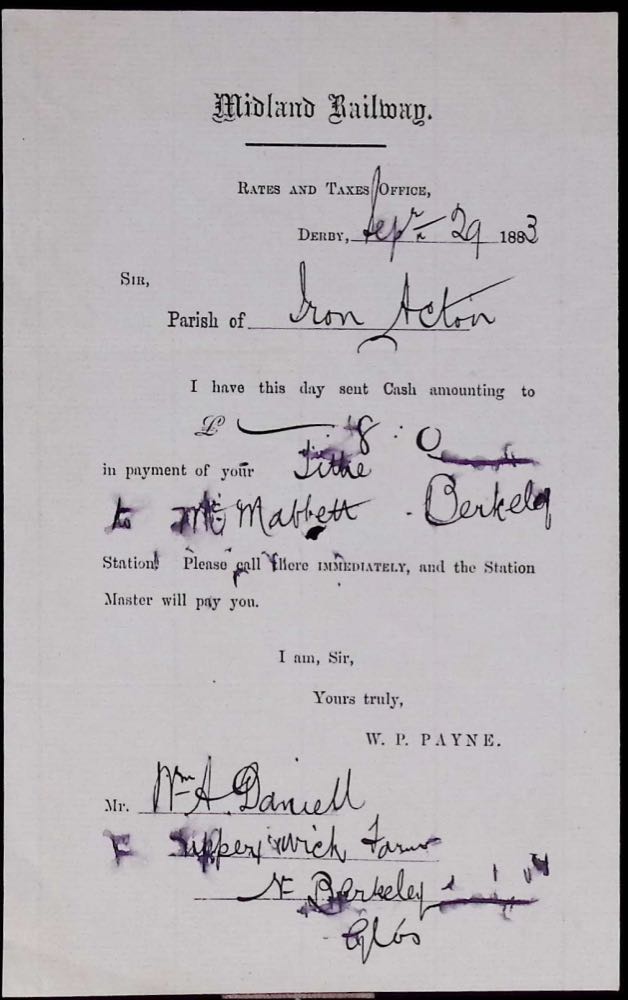 Midland Railway.
RATES AND TAXES OFFICE,
DERBY, Sepr 29 1883
SIR,
Parish of Iron Acton
I have this day sent Cash amounting to
£ — . 8 : 0
in payment of your Tithe
to Mr Mabbett . Berkeley
Station. Please call there IMMEDIATELY, and the Station
Master will pay you.
I am, Sir,
Yours truly,
W. P. PAYNE.
Mr. Wm A Daniell
Upper Wick Farm
Nr Berkeley
Glos